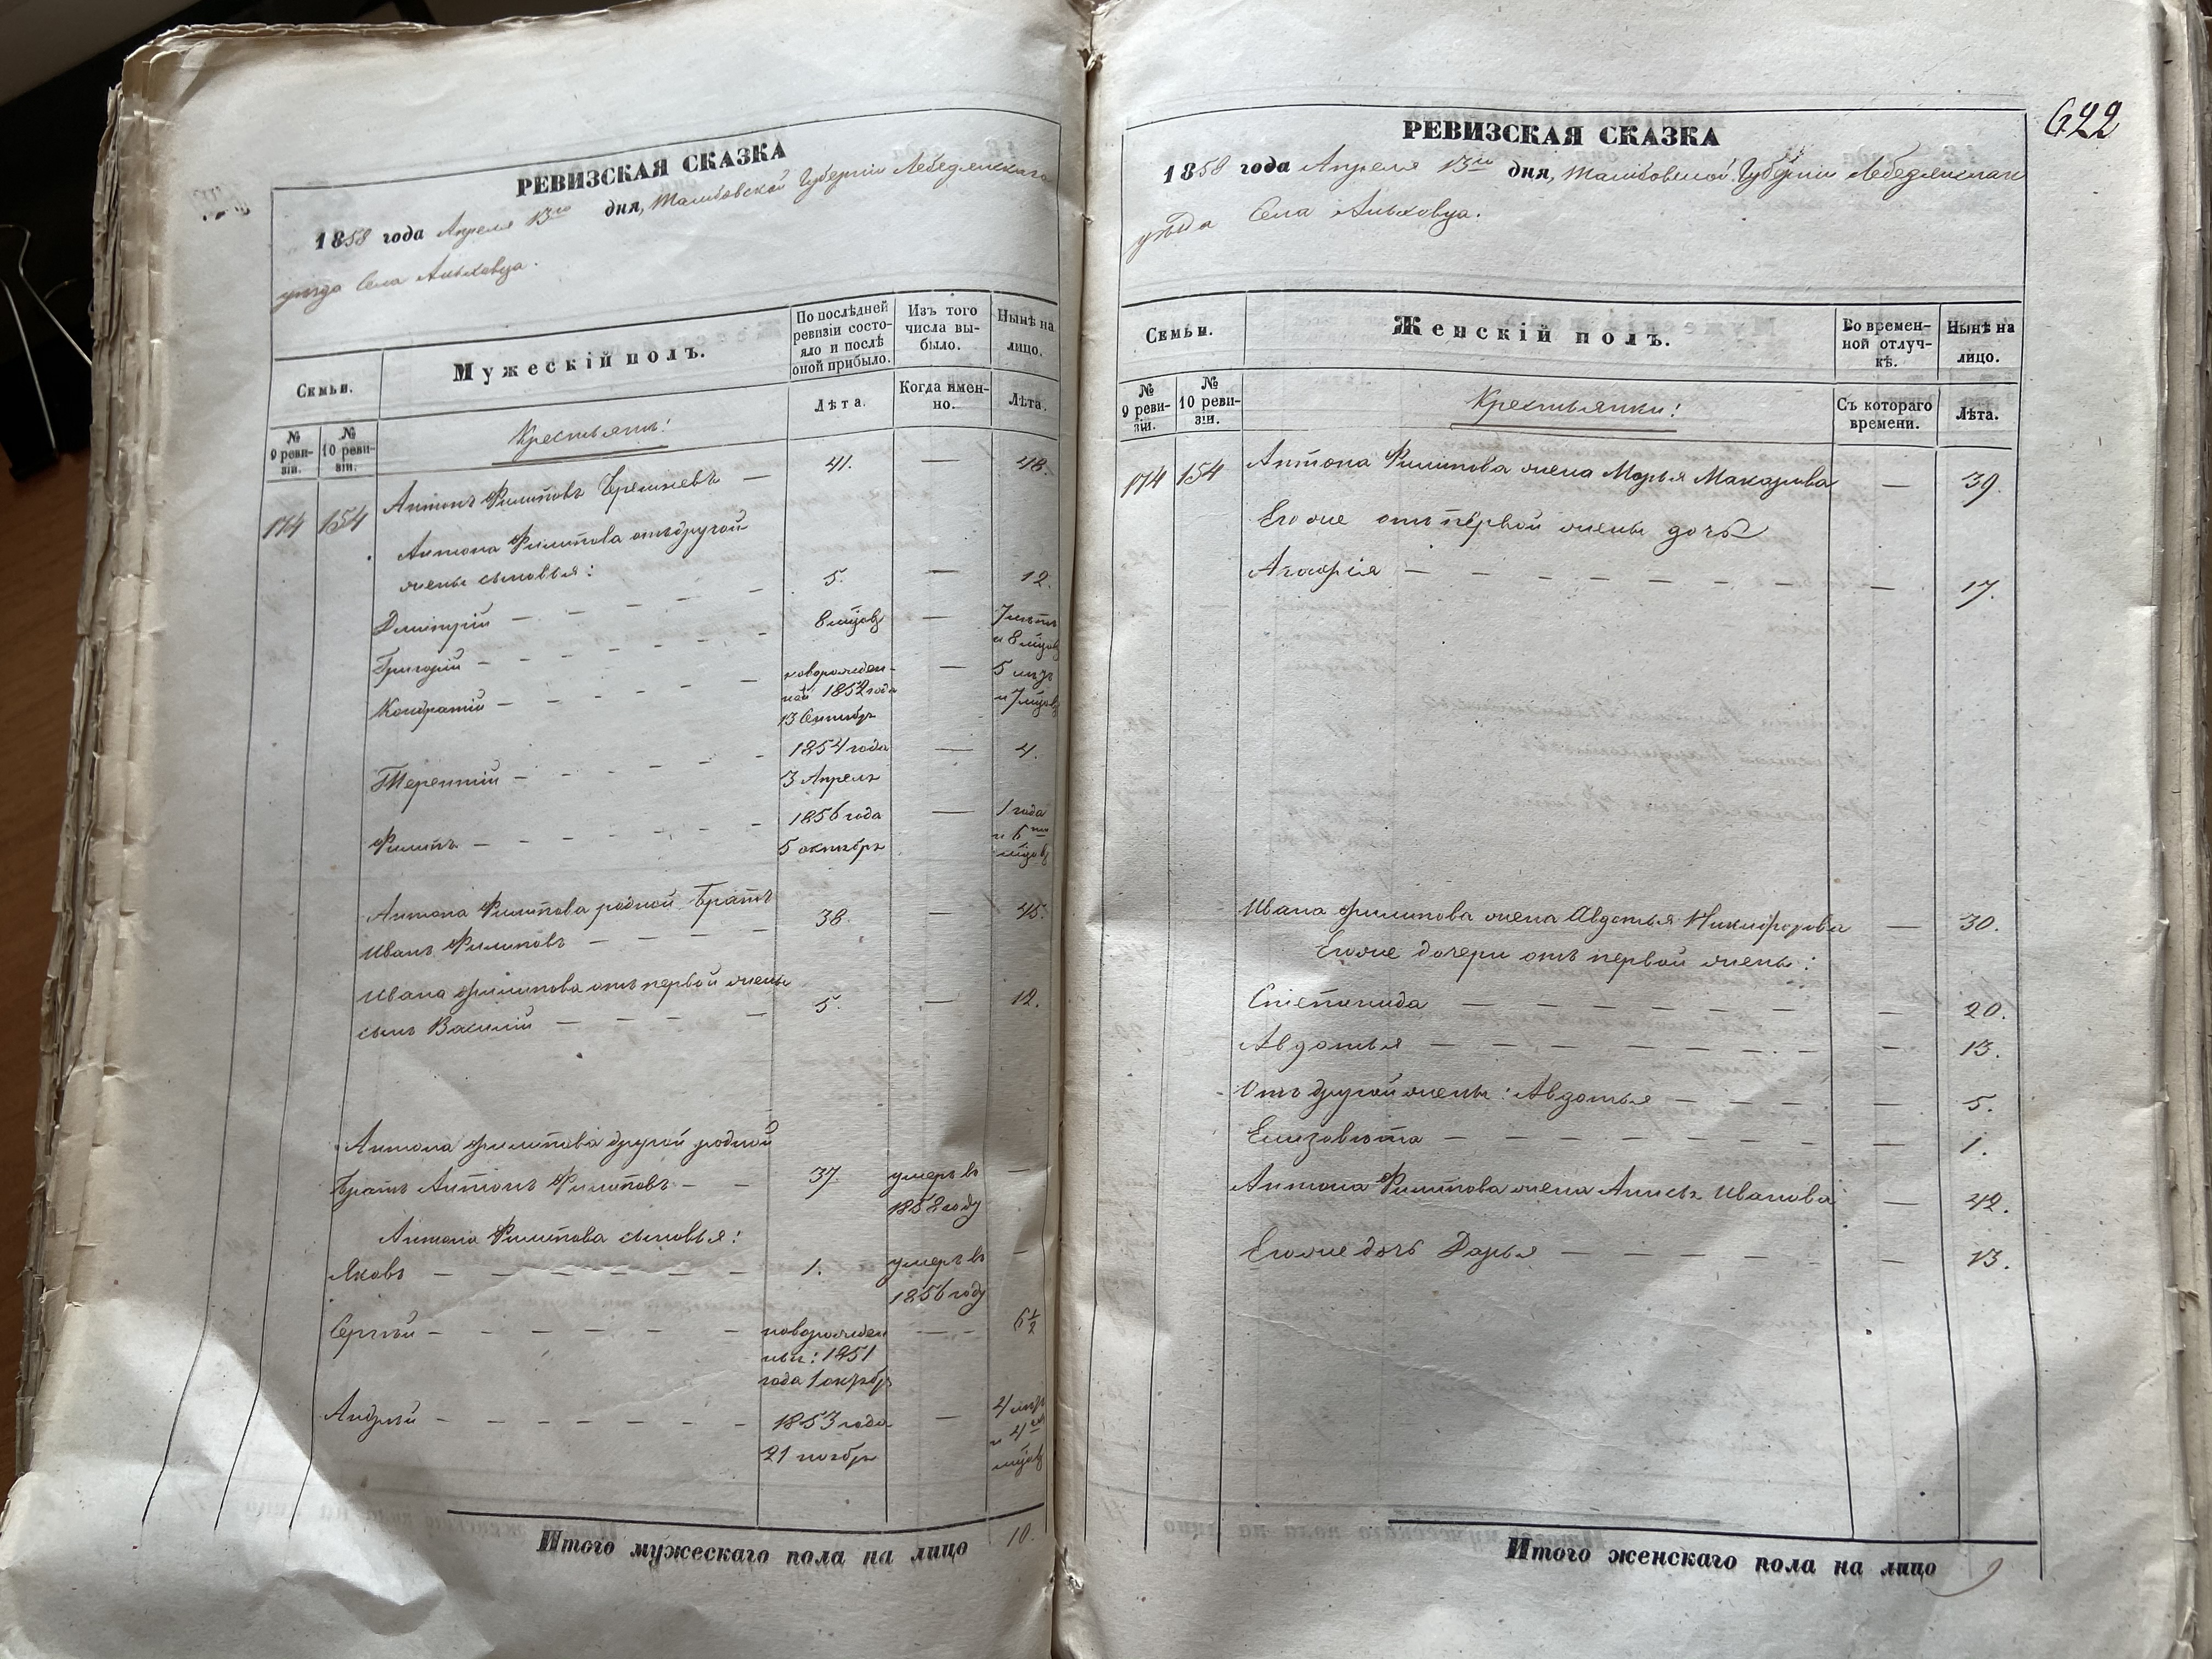 РЕВИЗСКАЯ СКАЗКА
1858 года Апреля 13го дня, Тамбовской Губернiи Лебедянскаго
уѣзда Села
Семьи.
Мужескiй полъ.
По послѣдней ревизiи состояло и послѣ оной прибыло.
Изъ того числа выбыло.
Нынѣ на лицо.
№ 9 ревизiи.
№ 10 ревизiи.
Лѣта.
Когда именно.
Лѣта.
Крестьяне:
174 154 Антонъ Филиповъ — 41. — 48.
Антона Филипова отъ другой
жены сыновья:
Дмитрiй — 5. — 12.
Григорiй — 8 мѣцовъ — 7 лѣтъ и 8 мѣцовъ
Кондратiй — новорожденной 1852 года 13 Сентябр — 5 лѣтъ и 7 мѣцовъ
Терентiй — 1854 года 3 Апреля — 4.
Филипъ — 1856 года 5 октября — 1 года и 6ти мѣцовъ
Антона Филипова родной братъ
Иванъ Филиповъ — 38. — 45.
Ивана Филипова отъ первой жены
сынъ Василiй — 5. — 12.
Антона Филипова другой родной
братъ Антонъ Филиповъ — 37. умеръ въ 1852 году —
Антона Филипова сыновья:
Яковъ — 1. умеръ въ 1856 году —
Сергѣй — новорожден 1851 года 1 октябр — 6½
Андрѣй — 1853 года 21 ноября — 4 лѣтъ и 4 мѣцовъ
Итого мужескаго пола на лицо 10.
622
РЕВИЗСКАЯ СКАЗКА
1858 года Апреля 13го дня, Тамбовской Губернiи Лебедянскаго
уѣзда Села
Семьи.
Женскiй полъ.
Во временной отлучкѣ.
Нынѣ на лицо.
№ 9 ревизiи.
№ 10 ревизiи.
Съ котораго времени.
Лѣта.
Крестьянки:
174 154 Антона Филипова жена Марья Макарова — 39.
Его же отъ первой жены дочь
— 17.
Ивана Филипова жена Авдотья Никифорова — 30.
Его же дочери отъ первой жены:
Степанида — 20.
Авдотья — 13.
Отъ другой жены: Авдотья — 5.
Елизовѣта — 1.
Антона Филипова жена Анисья Иванова — 42.
Его же дочь Дарья — 13.
Итого женскаго пола на лицо 9